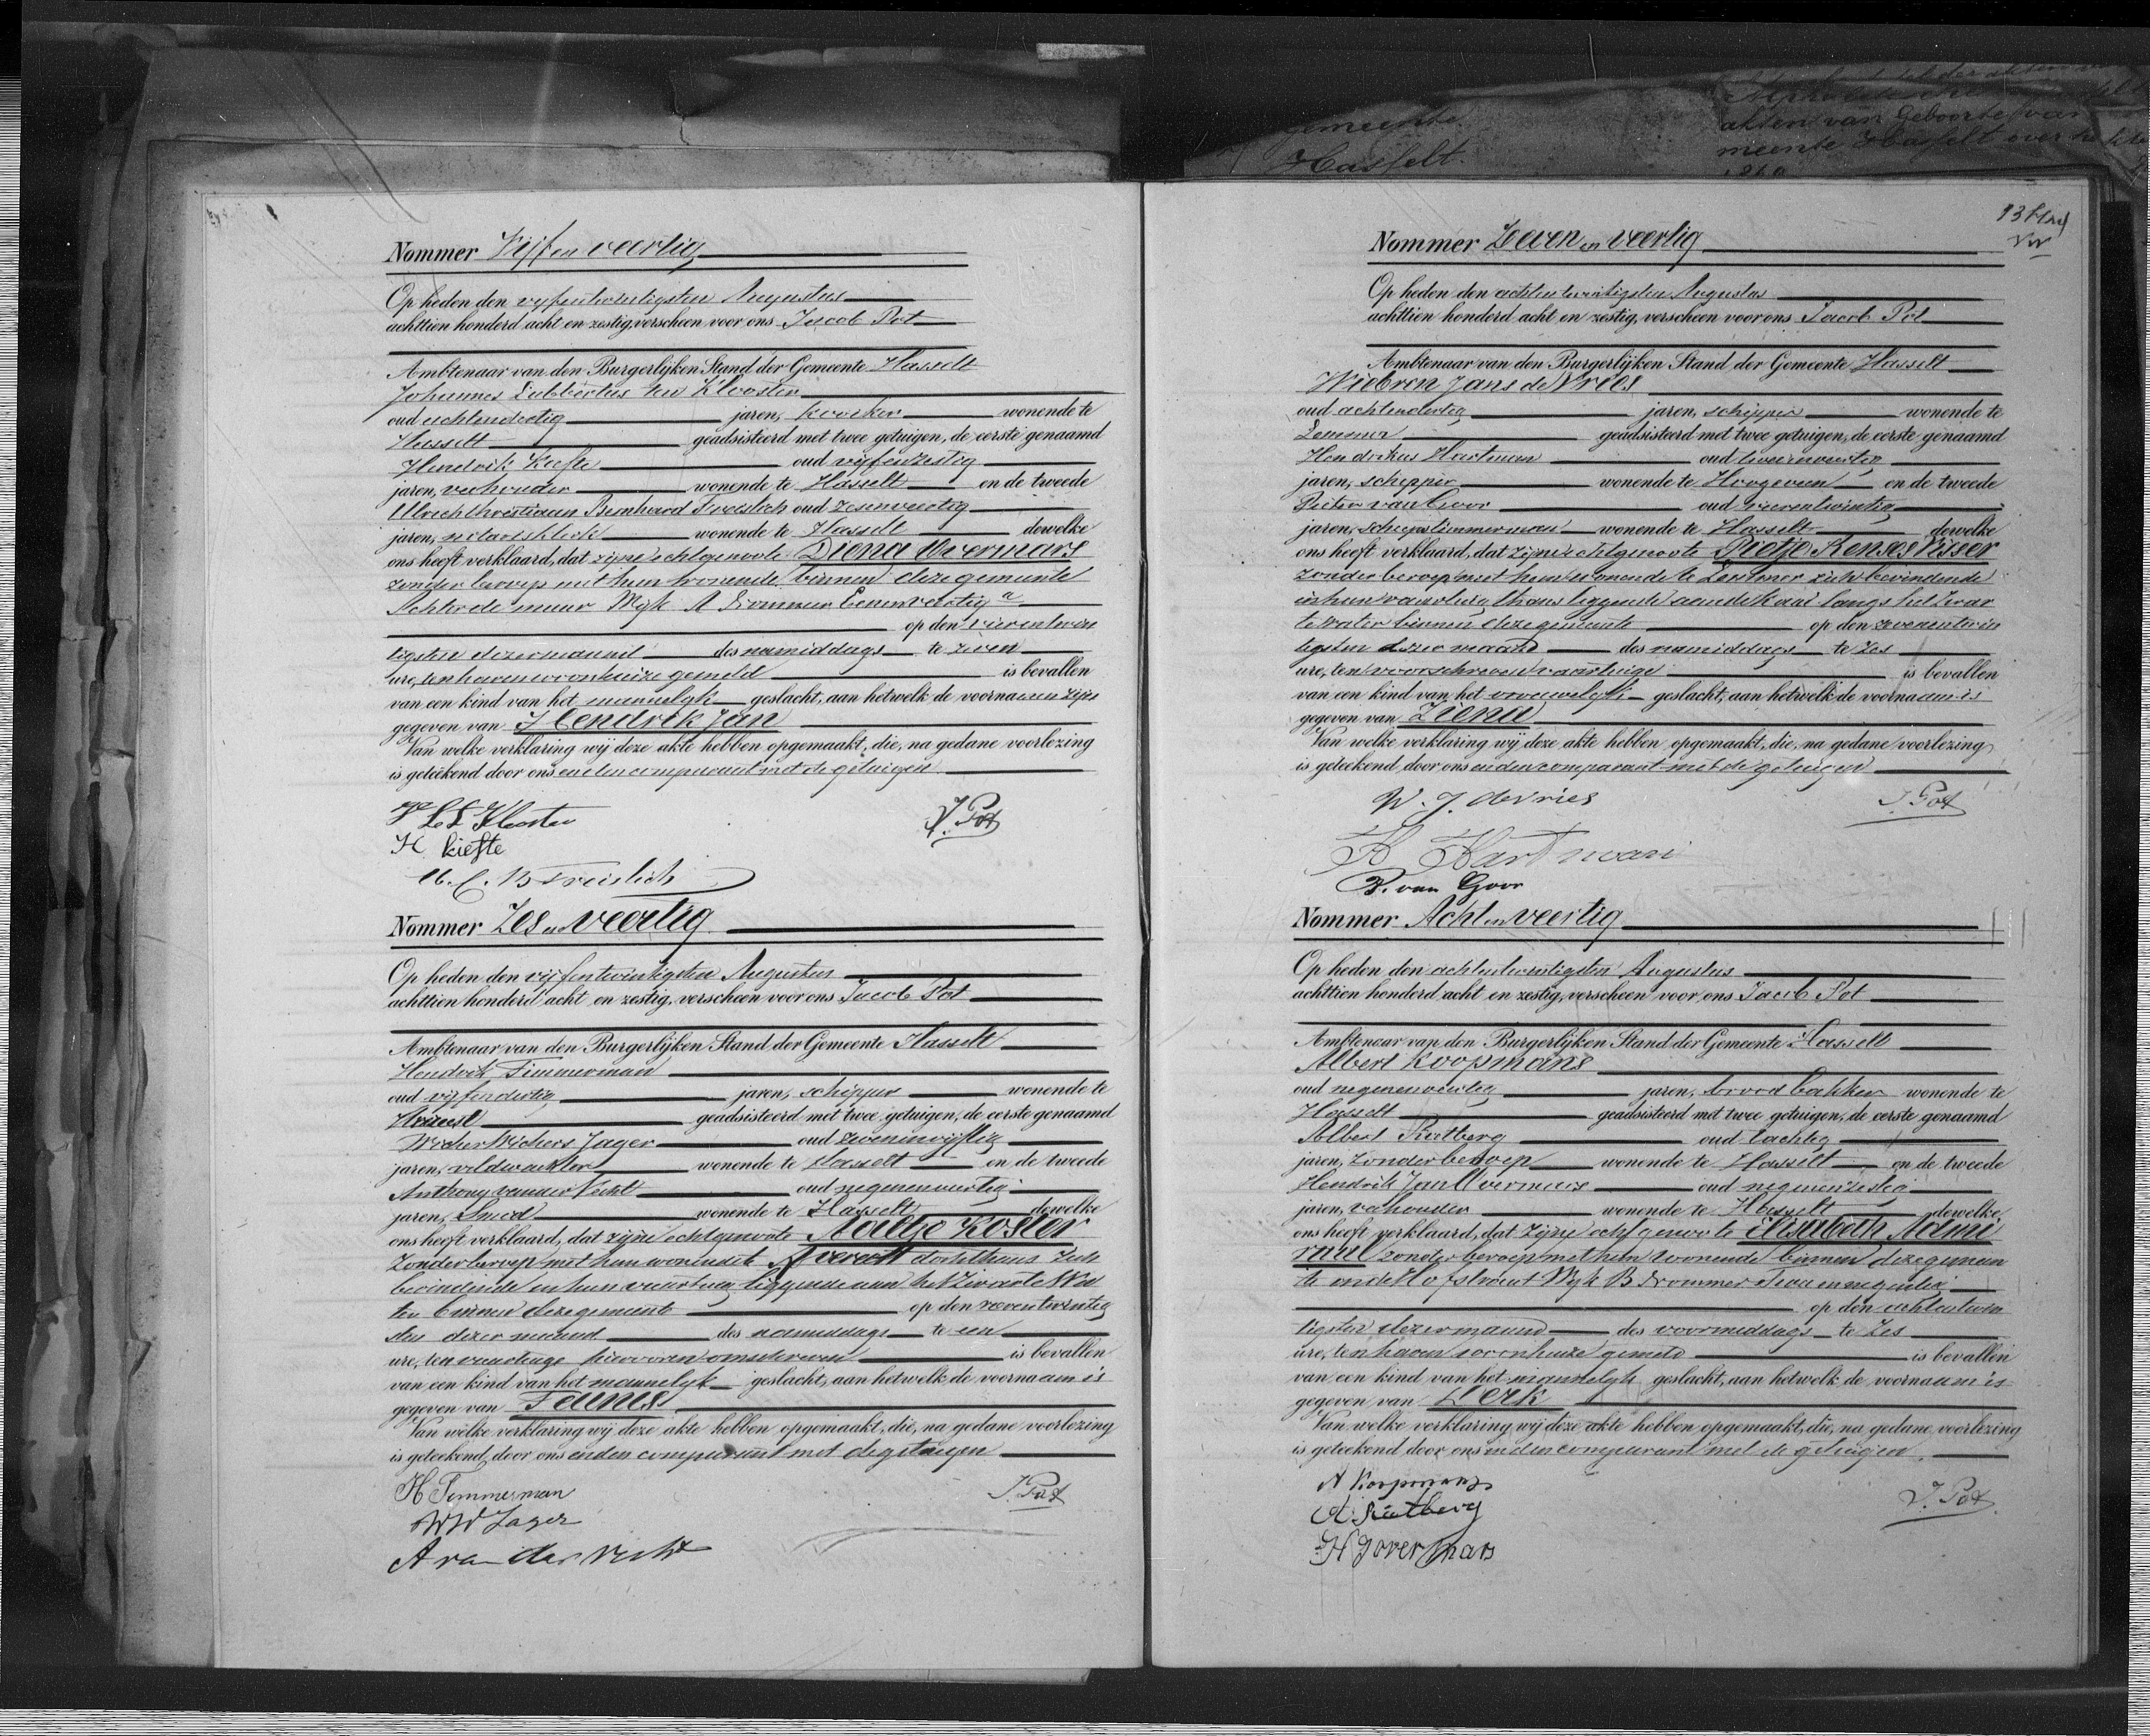 Gemeente
Hasselt.
akten van Geboorte van
meente Hasselt over
Nommer Vijf en veertig
Op heden den vyfentwintigsten Augustus
achttien honderd acht en zestig, verscheen voor ons Jacob Pot
Ambtenaar van den Burgerlijken Stand der Gemeente Hasselt
Johannes Lubbertus ten Klooster
oud achtendertig jaren, wonende te
Hasselt geadsisteerd met twee getuigen, de eerste genaamd
Hendrik Kiefte oud vijfenzestig
jaren, veehouder wonende te Hasselt en de tweede
Ulrich Christiaan Bernhard Freislich oud zesenveertig
jaren, notarisklerk wonende te Hasselt dewelke
ons heeft verklaard, dat zijne echtgenoote Diena Overmars
zonder beroep met hem wonende binnen deze gemeente
Achter de muur Wyk A Nommer Eenenveertig a
op den vierentwin
tigsten dezer maand des namiddags te zeven
ure, ten haren woonhuize gemeld is bevallen
van een kind van het mannelyk geslacht, aan hetwelk de voornamen zijn
gegeven van Hendrik Jan
Van welke verklaring wij deze akte hebben opgemaakt, die, na gedane voorlezing
is geteekend door ons en den comparant met de getuigen.
J. L. t. Klooster
J. Pot
H Kiefte
U. C. B Freislich
Nommer Zes en veertig
Op heden den vijfentwintigsten Augustus
achttien honderd acht en zestig, verscheen voor ons Jacob Pot
Ambtenaar van den Burgerlijken Stand der Gemeente Hasselt
Hendrik Timmerman
oud vyfendertig jaren, schipper wonende te
geadsisteerd met twee getuigen, de eerste genaamd
Wicher Wichers Jager oud zevenenvijftig
jaren, veldwachter wonende te Hasselt en de tweede
Anthony van der Vecht oud negenenveertig
jaren, Smid wonende te Hasselt dewelke
ons heeft verklaard, dat zijne echtgenoote Aaltje Koster
Zonder beroep met hem wonende te Avereest doch thans zich
bevindende in hun vaartuig liggende aan het Zwarte Wa
ter binnen deze gemeente op den
sten dezer maand des namiddags te een
ure, ten vaartuige hiervoren omschreven is bevallen
van een kind van het mannelyk geslacht, aan hetwelk de voornaam is
gegeven van Teunis
Van welke verklaring wij deze akte hebben opgemaakt, die, na gedane voorlezing
is geteekend door ons en den comparant met de getuigen
H Timmerman
J. Pot
WW Jager
A van der Vecht
Nommer Zeven en veertig
Op heden den achtentwintigsten Augustus
achttien honderd acht en zestig, verscheen voor ons Jacob Pot
Ambtenaar van den Burgerlijken Stand der Gemeente Hasselt
Wiebren Jans de Vries
oud achtendertig jaren, schipper wonende te
Lemmer geadsisteerd met twee getuigen, de eerste genaamd
Hendrikus Hartman oud
jaren, schipper wonende te Hoogeveen en de tweede
Pieter van Goor oud vierentwintig
jaren, scheepstimmerman wonende te Hasselt dewelke
ons heeft verklaard, dat zijne echtgenoote Pietje Kenses Visser
zonder beroep met hem wonende te Lemmer zich bevindende
in hun vaartuig thans liggende aan de Kaai langs het Zwar
te water binnen deze gemeente op den zevenentwin
tigsten dezer maand des namiddags te zes
ure, ten voorschreven vaartuige is bevallen
van een kind van het vrouwelyk geslacht, aan hetwelk de voornaam is
gegeven van Ziena
Van welke verklaring wij deze akte hebben opgemaakt, die, na gedane voorlezing
is geteekend door ons en den comparant met de getuigen
W. J. de Vries
J. Pot
H Hartman
P. van Goor
Nommer Acht en veertig
Op heden den achtentwintigsten Augustus
achttien honderd acht en zestig, verscheen voor ons Jacob Pot
Ambtenaar van den Burgerlijken Stand der Gemeente Hasselt
Albert Koopmans
oud negenenveertig jaren, broodbakker wonende te
Hasselt geadsisteerd met twee getuigen, de eerste genaamd
Albert Rietberg oud tachtig
jaren, zonder beroep wonende te Hasselt en de tweede
Hendrik Jan Overmars oud negenenzestig
jaren, vehouder wonende te Hasselt dewelke
ons heeft verklaard, dat zijne echtgenoote Elisabeth Admi
raal zonder beroep met hem wonende binnen deze gemeen
te in de Hofstraat Wyk B Nommer Twee en negentig
op den achtentwin
tigsten dezer maand des voormiddags te zes
ure, ten haren woonhuize gemeld is bevallen
van een kind van het mannelyk geslacht, aan hetwelk de voornaam is
gegeven van Derk
Van welke verklaring wij deze akte hebben opgemaakt, die, na gedane voorlezing
is geteekend door ons en den comparant met de getuigen.
A Koopmans
J. Pot
A. Rietberg
H J overmars